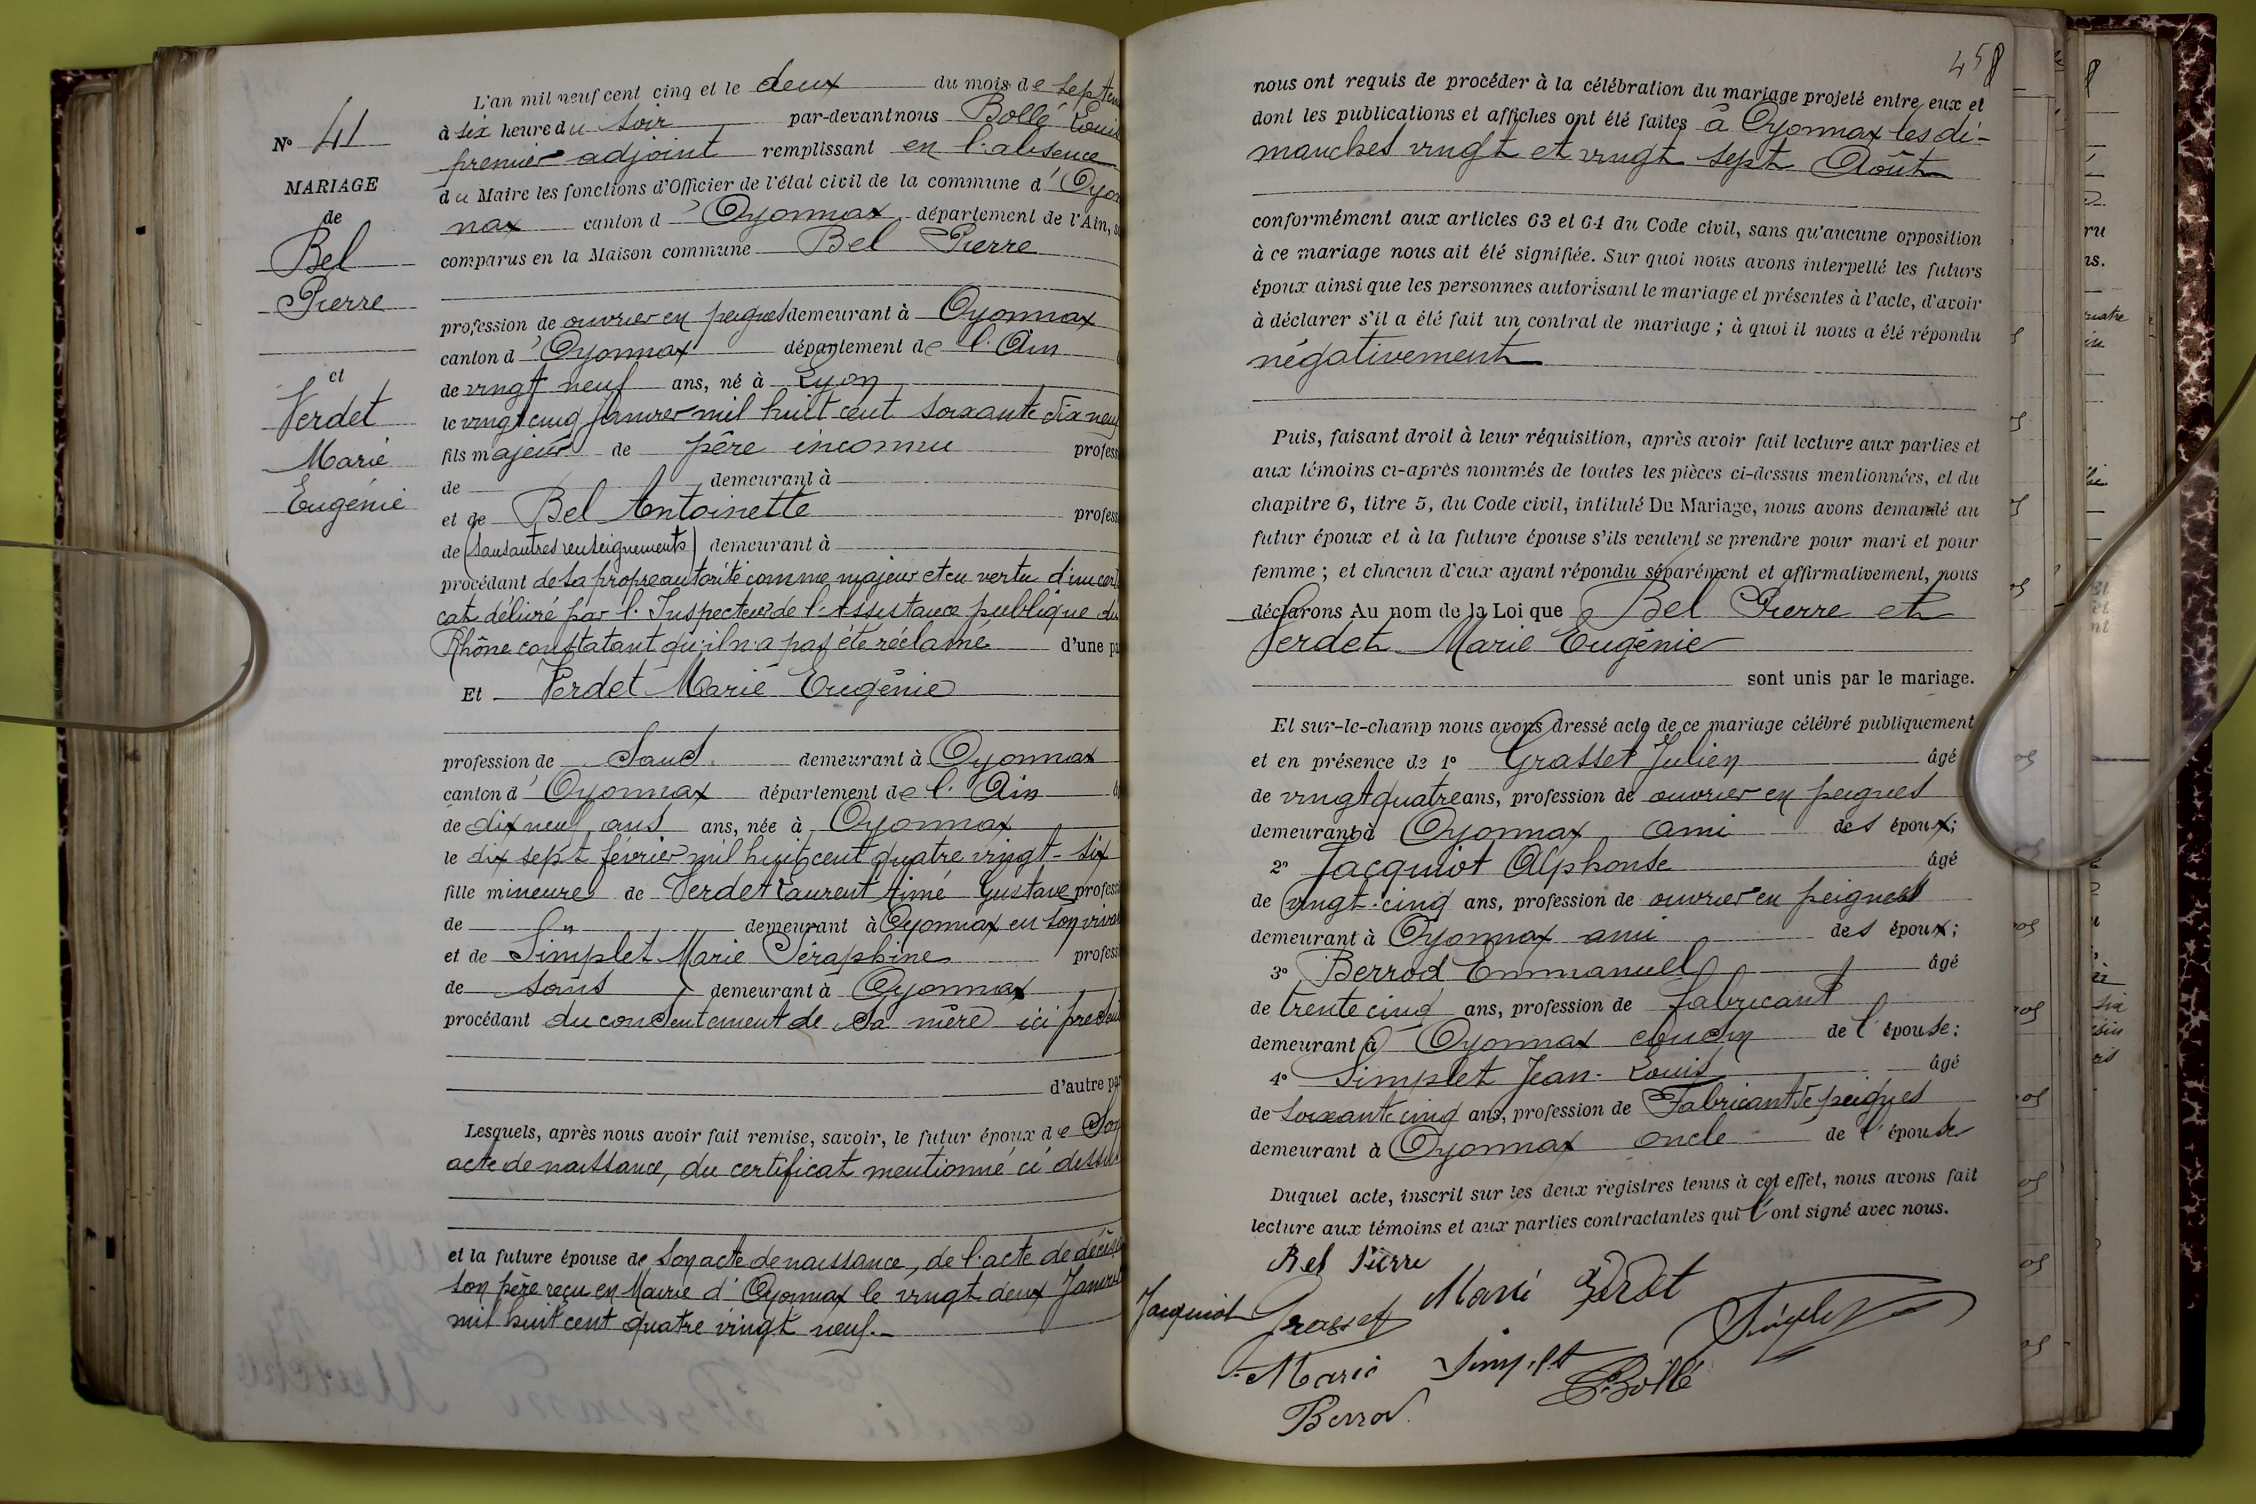 N° 41
MARIAGE
de
Bel
Pierre
et
Verdet
Marie
Eugénie
L'an mil neuf cent cinq et le deux du mois de septem
à six heure du soir par-devant nous Bollé Louis
premier adjoint remplissant en l'absence
du Maire les fonctions d'Officier de l'état civil de la commune d'Oyon
nax canton d'Oyonnax, département de l'Ain, s
comparus en la Maison commune Bel Pierre
profession de ouvrier en peignes demeurant à Oyonnax
canton d'Oyonnax département de l'Ain
de vingt neuf ans, né à Lyon
le vingt cinq Janvier mil huit cent soixante dix neuf
fils majeur de père inconnu profess
de demeurant à
et de Bel Antoinette profess
de (sans autres renseignements) demeurant à
procédant de sa propre autorité comme majeur et en vertu d'un certi
cat délivré par l'Inspecteur de l'Assistance publique du
Rhône constatant qu'il n'a pas été réclamé d'une pa
Et Verdet Marie Eugénie
profession de Sans demeurant à Oyonnax
canton d'Oyonnax département de l'Ain
de dix neuf ans ans, née à Oyonnax
le dix sept février mil huit cent quatre vingt-six
fille mineure de Verdet Laurent Aimé Gustave profess
de demeurant à Oyonnax en son vivan
et de Simplet Marie Séraphine profess
de sans demeurant à Oyonnax
procédant du consentement de sa mère ici présent
d'autre par
Lesquels, après nous avoir fait remise, savoir, le futur époux de Son
acte de naissance, du certificat mentionné ci dessus
et la future épouse de son acte de naissance, de l'acte de décès de
son père reçu en Mairie d'Oyonnax le vingt deux Janvier
mil huit cent quatre vingt neuf.-
458
nous ont requis de procéder à la célébration du mariage projeté entre eux et
dont les publications et affiches ont été faites à Oyonnax les di-
manches vingt et vingt sept Août
conformément aux articles 63 et 64 du Code civil, sans qu'aucune opposition
à ce mariage nous ait été signifiée. Sur quoi nous avons interpellé les futurs
époux ainsi que les personnes autorisant le mariage et présentes à l'acte, d'avoir
à déclarer s'il a été fait un contrat de mariage; à quoi il nous a été répondu
négativement
Puis, faisant droit à leur réquisition, après avoir fait lecture aux parties et
aux témoins ci-après nommés de toutes les pièces ci-dessus mentionnées, et du
chapitre 6, titre 5, du Code civil, intitulé Du Mariage, nous avons demandé au
futur époux et à la future épouse s'ils veulent se prendre pour mari et pour
femme; et chacun d'eux ayant répondu séparément et affirmativement, nous
déclarons Au nom de la Loi que Bel Pierre et
Verdet Marie Eugénie
sont unis par le mariage.
Et sur-le-champ nous avons dressé acte de ce mariage célébré publiquement
et en présence de 1° Grasset Julien âgé
de vingt quatre ans, profession de ouvrier en peignes
demeurant à Oyonnax ami des époux;
2° Jacquiot Alphonse âgé
de vingt-cinq ans, profession de ouvrier en peignes
demeurant à Oyonnax ami des époux;
3° Berrod Emmanuel âgé
de trente cinq ans, profession de fabricant
demeurant à Oyonnax cousin de l'épouse;
4° Simplet Jean-Louis âgé
de soixante cinq ans, profession de Fabricant de peignes
demeurant à Oyonnax oncle de l'épouse
Duquel acte, inscrit sur les deux registres tenus à cet effet, nous avons fait
lecture aux témoins et aux parties contractantes qui l'ont signé avec nous.
Bel Pierre
Marie Verdet
Jacquiot Grasset Simplet
Marie Simplet Bollé
Berrod